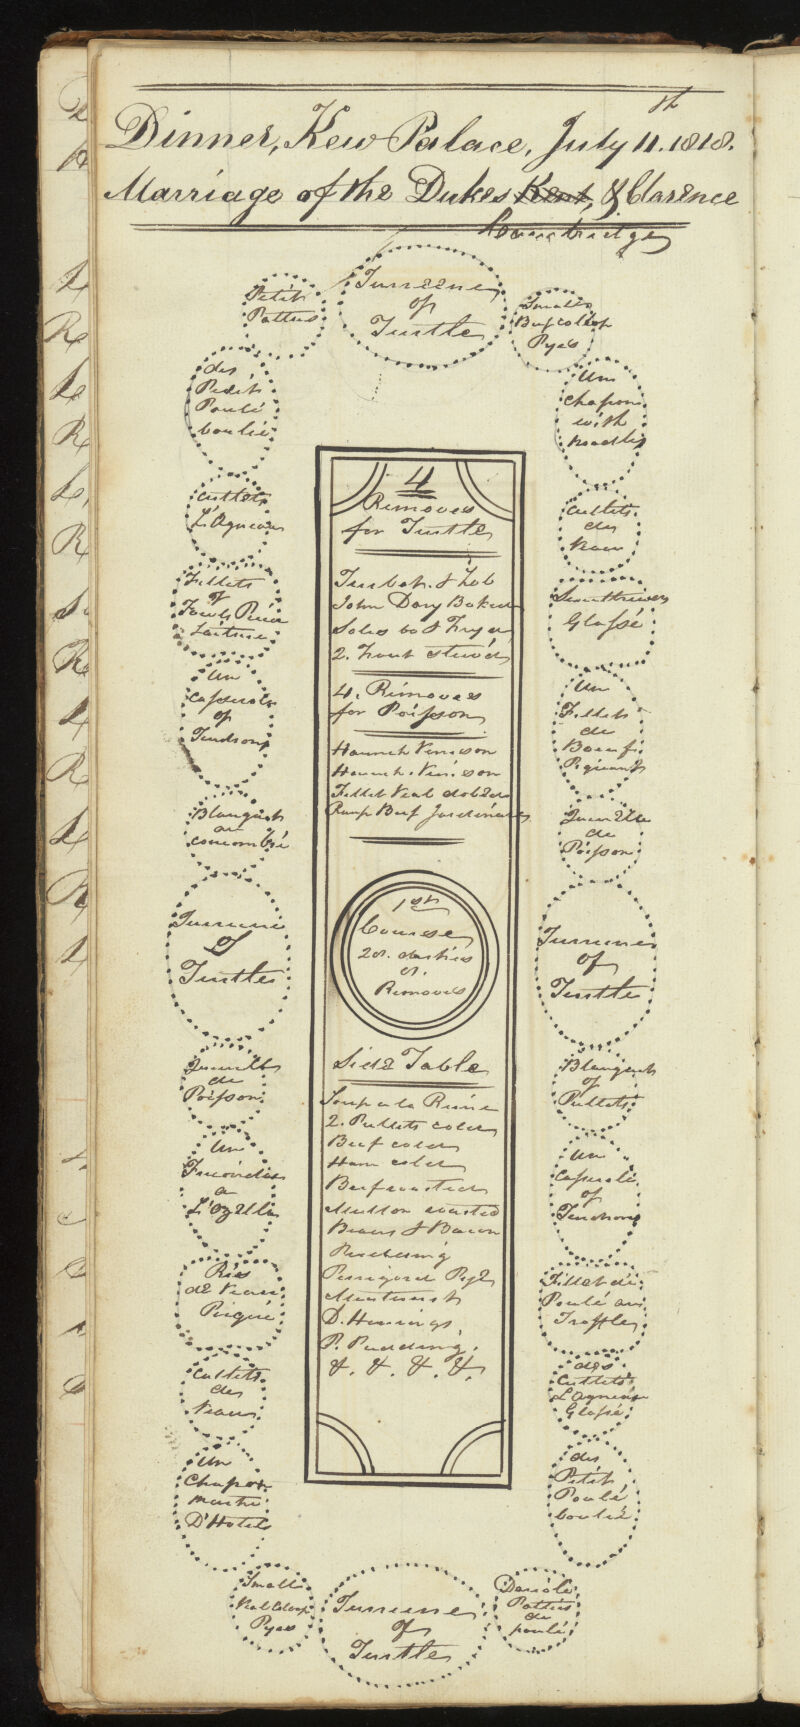 Dinner, Kew Palace, July 11th. 1818.
Marriage of the Dukes Kent, & Clarence
Cambridge
Tureene
of
Turtle
Petit
Patties
Small
Beef
Pyes
des
Petit
Poulé
boulié
Un
Chapon
with
Noodles
Cuttets
L'Agneau
Cuttets
des
Veau
Fillets
of
Fowls
Laitue
Glassé
Un
of
Tendrons
Un
Fillet
de
Boeuf
Piquant
Blanquet
au
concombré
Quenelle
de
Poisson
Tureene
of
Turtle
Tureene
of
Turtle
Quenells
de
Poisson
Blanquet
of
Pullets
Un
Fricondian
a
L'Ozellé
Un
of
Tendrons
Ris
de Veau
Piqué
Fillet de
Poulé au
Troffles
Cuttets
des
Veau
des
Cuttets
L'Agneau
Glassé
Un
Chapon
D'Hotel
des
Petit
Poulé
boulié
Small
Pyes
Tureene
of
Turtle
Dariole
Patties
de
poulé
4
Removes
for Turtle
Turbot. & Lob
John Dory Baked
Soles bo & Fryd
2. Trout stewd
4. Removes
for Poisson
Haunch Venison
Haunch. Venison
Fillet Veal
Rump Beef Jardiniere
1st
Course
28. dishes
8.
Removes
Side Table
Soup a la Reine
2. Pullets cold
Beef cold
Ham cold
Beef roasted
Mutton roasted
Beans & Bacon
Perrigord Pye
P. Pudding.
&. &. &. &.